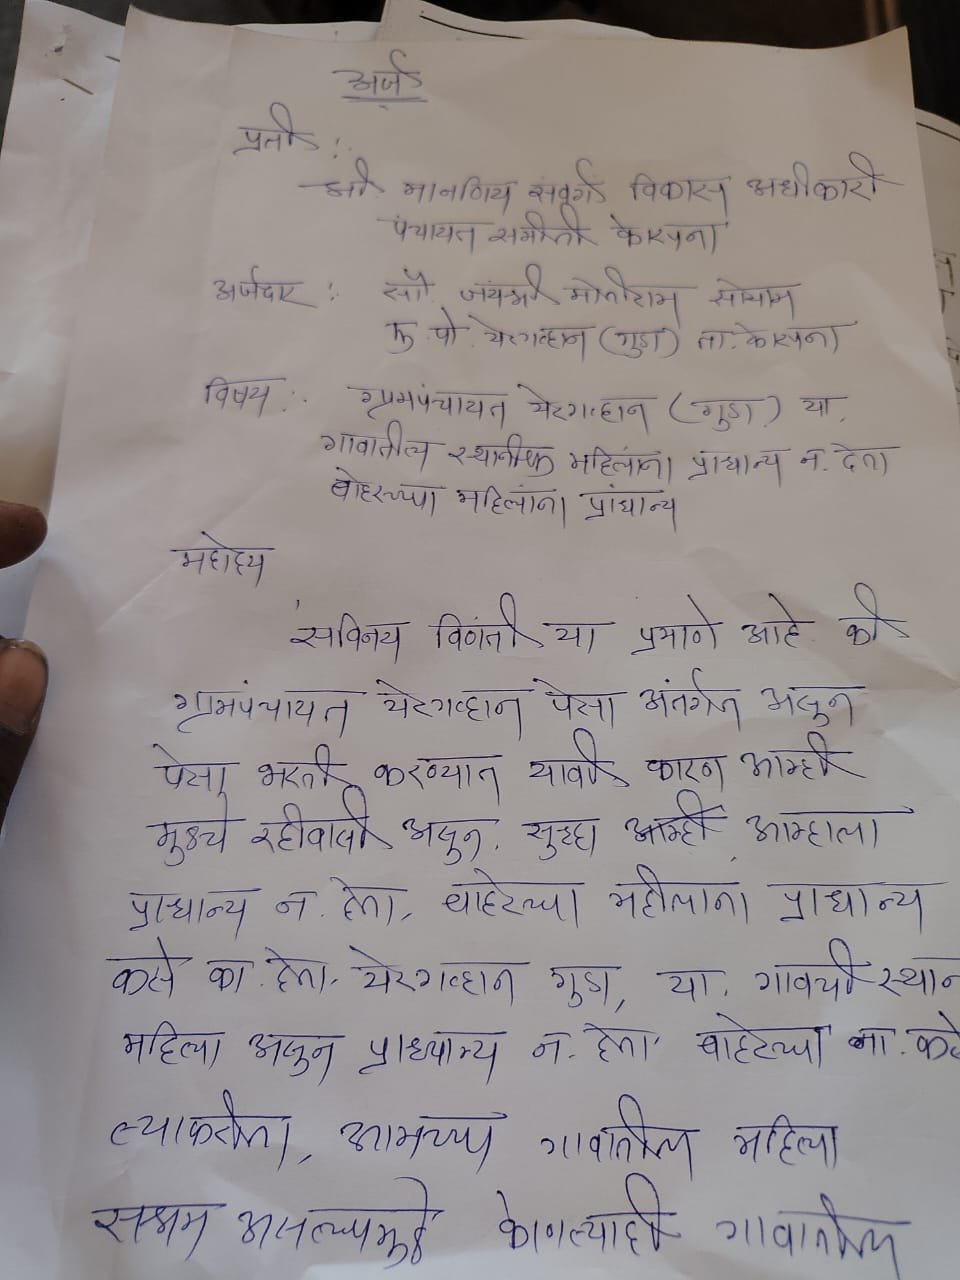 अर्ज
प्रती :
श्री. मानणिय संवर्ग विकास अधीकारी
पंचायत समीती कोरपना
अर्जदार : सौ. जयश्री मोतीराम सोयाम
मु. पो. येरगव्हान (गुडा) ता. कोरपना
विषय : ग्रामपंचायत येरगव्हान (गुडा) या.
गावातील स्थानीक महिलांना प्राधान्य न. देता
बाहेरच्या महिलांना प्राधान्य
महोदय
सविनय विनंती या प्रमाणे आहे की
ग्रामपंचायत येरगव्हान पेसा अंतर्गत असुन
पेसा भरती करण्यात यावी कारन आम्ही
मुळचे रहीवासी असुन. सुद्धा आम्ही आम्हाला
प्राधान्य न. देता, बाहेरच्या महीलांना प्राधान्य
कसे का. देता. येरगव्हान गुडा, या. गावची स्थान
महिला असुन प्राधान्य न. देता. बाहेरच्या ना. कसे
त्याकरीता, आमच्या गावातील महिला
सक्षम असल्यामुळे कोणत्याही गावातील